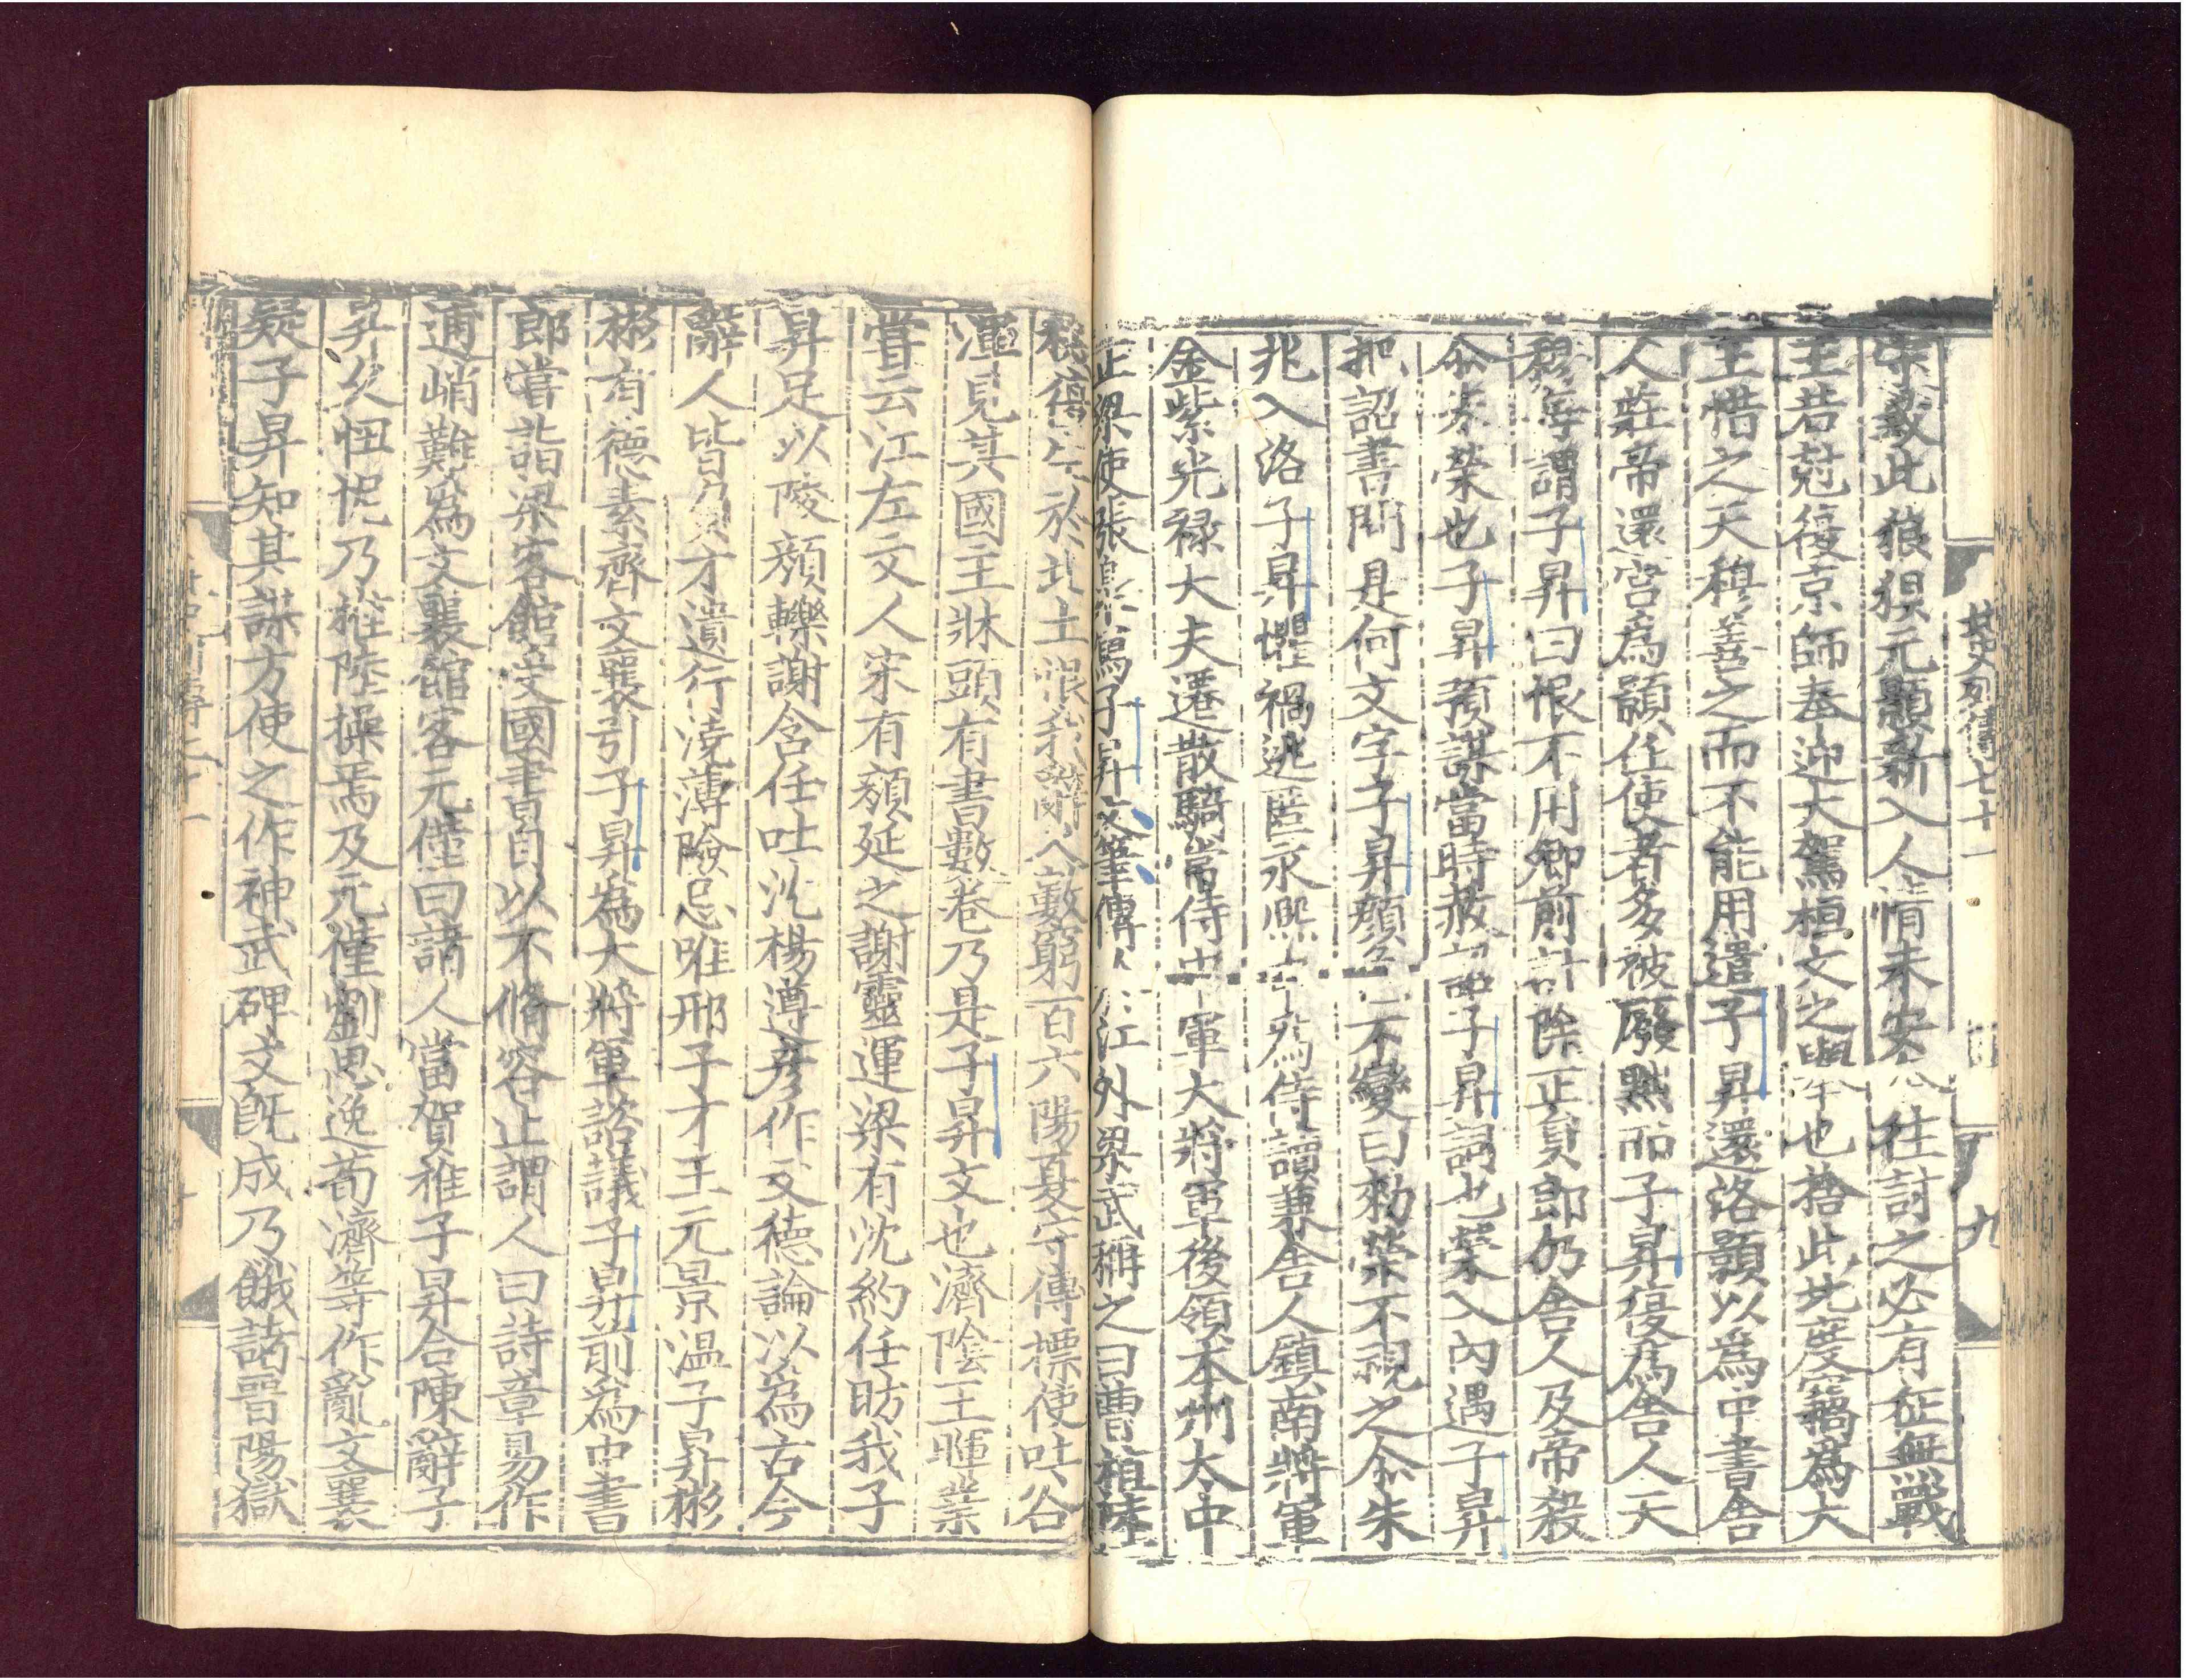 北史列傳七十一
九
宗敬此狼狽元顥新入人情未安 往討之必有征無戰
王若尅復京師奉迎大駕桓文之舉也捨此北度竊爲大
王惜之天穆善之而不能用遣子昇還洛顥以爲中書舍
人莊帝還宮爲顥任使者多被廢黜而子昇復爲舍人天
穆每謂子昇曰恨不用卿前計除正員郎仍舍人及帝殺
尒朱榮也子昇預謀當時赦詔子昇詞也榮入內遇子昇
把詔書問是何文字子昇顏色不變曰勑榮不視之尒朱
兆入洛子昇懼禍逃匿永熙中爲侍讀兼舍人鎮南將軍
金紫光禄大夫遷散騎常侍中軍大將軍後領本州大中
正梁使張皐寫子昇文筆傳於江外梁武稱之曰曹植陸
機復生於北土恨我辭人數窮百六陽夏守傅摽使吐谷
渾見其國王牀頭有書數卷乃是子昇文也濟陰王暉業
嘗云江左文人宋有顏延之謝靈運梁有沈約任昉我子
昇足以陵顏轢謝含任吐沈楊遵彦作文德論以爲古今
辭人皆負才遺行澆薄險忌唯邢子才王元景温子昇彬
彬有德素齊文襄引子昇爲大將軍諮議子昇前爲中書
郎嘗詣梁客館受國書自以不脩容止謂人曰詩章易作
逋峭難爲文襄館客元僅曰諸人當賀推子昇合陳辭子
昇久忸怩乃推陸操焉及元僅劉思逸荀濟等作亂文襄
疑子昇知其謀方使之作神武碑文旣成乃餓諸晉陽獄